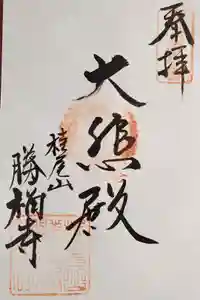 奉拝
大悲殿
桂尾山
勝 寺